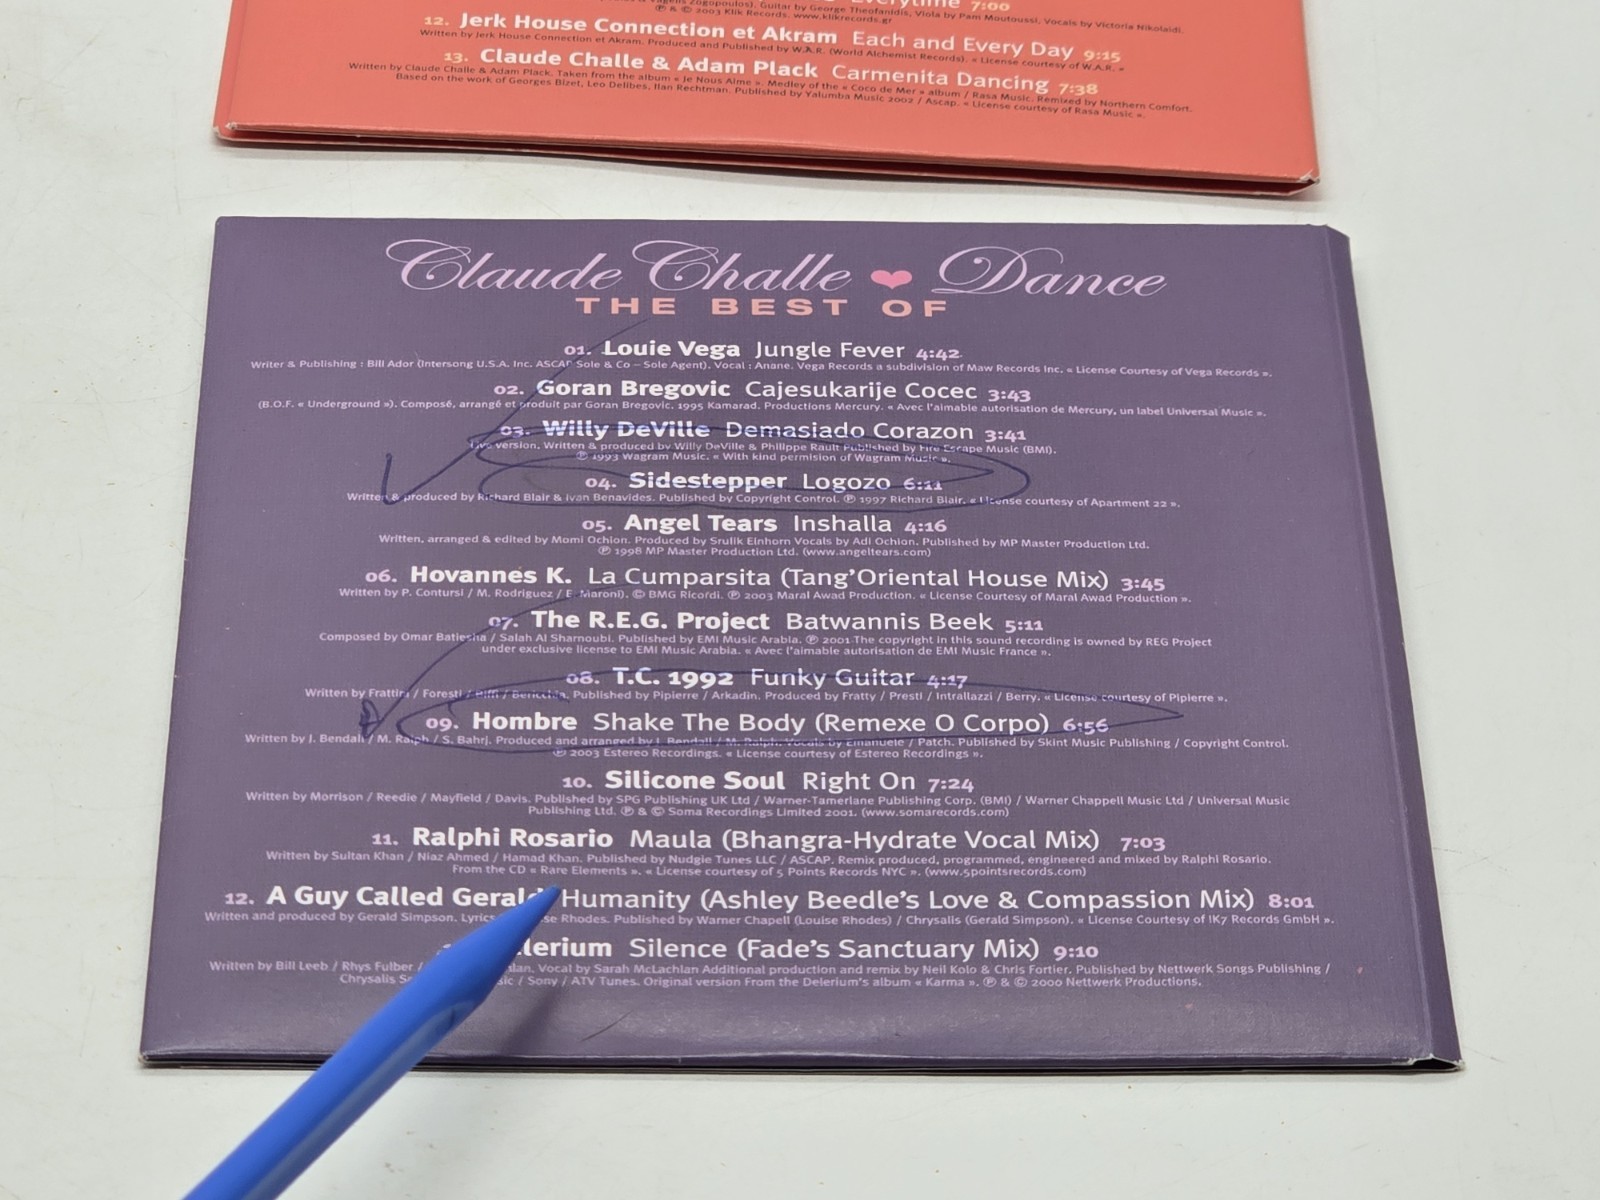 Everytime 7:00
Zogopoulos). Guitar by George Theofanidis, Viola by Pam Moutoussi, Vocals by Victoria Nikolaidi.
℗ & © 2003 Klik Records. www.klikrecords.gr
12. Jerk House Connection et Akram Each and Every Day 9:15
Written by Jerk House Connection et Akram. Produced and Published by W.A.R. (World Alchemist Records). « License courtesy of W.A.R. »
13. Claude Challe & Adam Plack Carmenita Dancing 7:38
Written by Claude Challe & Adam Plack. Taken from the album « Je Nous Aime ». Medley of the « Coco de Mer » album / Rasa Music. Remixed by Northern Comfort.
Based on the work of Georges Bizet, Leo Delibes, Ilan Rechtman. Published by Yalumba Music 2002 / Ascap. « License courtesy of Rasa Music ».
Claude Challe ❤ Dance
THE BEST OF
01. Louie Vega Jungle Fever 4:42
Writer & Publishing : Bill Ador (Intersong U.S.A. Inc. ASCAP Sole & Co – Sole Agent). Vocal : Anane. Vega Records a subdivision of Maw Records Inc. « License Courtesy of Vega Records ».
02. Goran Bregovic Cajesukarije Cocec 3:43
(B.O.F. « Underground »). Composé, arrangé et produit par Goran Bregovic. 1995 Kamarad. Productions Mercury. « Avec l'aimable autorisation de Mercury, un label Universal Music ».
03. Willy DeVille Demasiado Corazon 3:41
Live version. Written & produced by Willy DeVille & Philippe Rault Published by Fire Escape Music (BMI).
℗ 1993 Wagram Music. « With kind permision of Wagram Music ».
04. Sidestepper Logozo 6:11
Written & produced by Richard Blair & Ivan Benavides. Published by Copyright Control. ℗ 1997 Richard Blair. « License courtesy of Apartment 22 ».
05. Angel Tears Inshalla 4:16
Written, arranged & edited by Momi Ochion. Produced by Srulik Einhorn Vocals by Adi Ochion. Published by MP Master Production Ltd.
℗ 1998 MP Master Production Ltd. (www.angeltears.com)
06. Hovannes K. La Cumparsita (Tang'Oriental House Mix) 3:45
Written by P. Contursi / M. Rodriguez / E. Maroni). © BMG Ricordi. ℗ 2003 Maral Awad Production. « License Courtesy of Maral Awad Production ».
07. The R.E.G. Project Batwannis Beek 5:11
Composed by Omar Batiesha / Salah Al Sharnoubi. Published by EMI Music Arabia. ℗ 2001 The copyright in this sound recording is owned by REG Project
under exclusive license to EMI Music Arabia. « Avec l'aimable autorisation de EMI Music France ».
08. T.C. 1992 Funky Guitar 4:17
Written by Frattini / Foresti / Published by Pipierre / Arkadin. Produced by Fratty / Presti / Intrallazzi / Berry. « License courtesy of Pipierre ».
09. Hombre Shake The Body (Remexe O Corpo) 6:56
Written by J. Bendall / M. Ralph / S. Bahrj. Produced and arranged by J. Bendall / M. Ralph. Vocals by Emanuele / Patch. Published by Skint Music Publishing / Copyright Control.
℗ 2003 Estereo Recordings. « License courtesy of Estereo Recordings ».
10. Silicone Soul Right On 7:24
Written by Morrison / Reedie / Mayfield / Davis. Published by SPG Publishing UK Ltd / Warner-Tamerlane Publishing Corp. (BMI) / Warner Chappell Music Ltd / Universal Music
Publishing Ltd. ℗ & © Soma Recordings Limited 2001. (www.somarecords.com)
11. Ralphi Rosario Maula (Bhangra-Hydrate Vocal Mix) 7:03
Written by Sultan Khan / Niaz Ahmed / Hamad Khan. Published by Nudgie Tunes LLC / ASCAP. Remix produced, programmed, engineered and mixed by Ralphi Rosario.
From the CD « Rare Elements ». « License courtesy of 5 Points Records NYC ». (www.5pointsrecords.com)
12. A Guy Called Gerald Humanity (Ashley Beedle's Love & Compassion Mix) 8:01
Written and produced by Gerald Simpson. Lyrics Rhodes. Published by Warner Chapell (Louise Rhodes) / Chrysalis (Gerald Simpson). « License Courtesy of !K7 Records GmbH ».
lerium Silence (Fade's Sanctuary Mix) 9:10
Written by Bill Leeb / Rhys Fulber / lan. Vocal by Sarah McLachlan Additional production and remix by Neil Kolo & Chris Fortier. Published by Nettwerk Songs Publishing /
Chrysalis / Sony / ATV Tunes. Original version From the Delerium's album « Karma ». ℗ & © 2000 Nettwerk Productions.